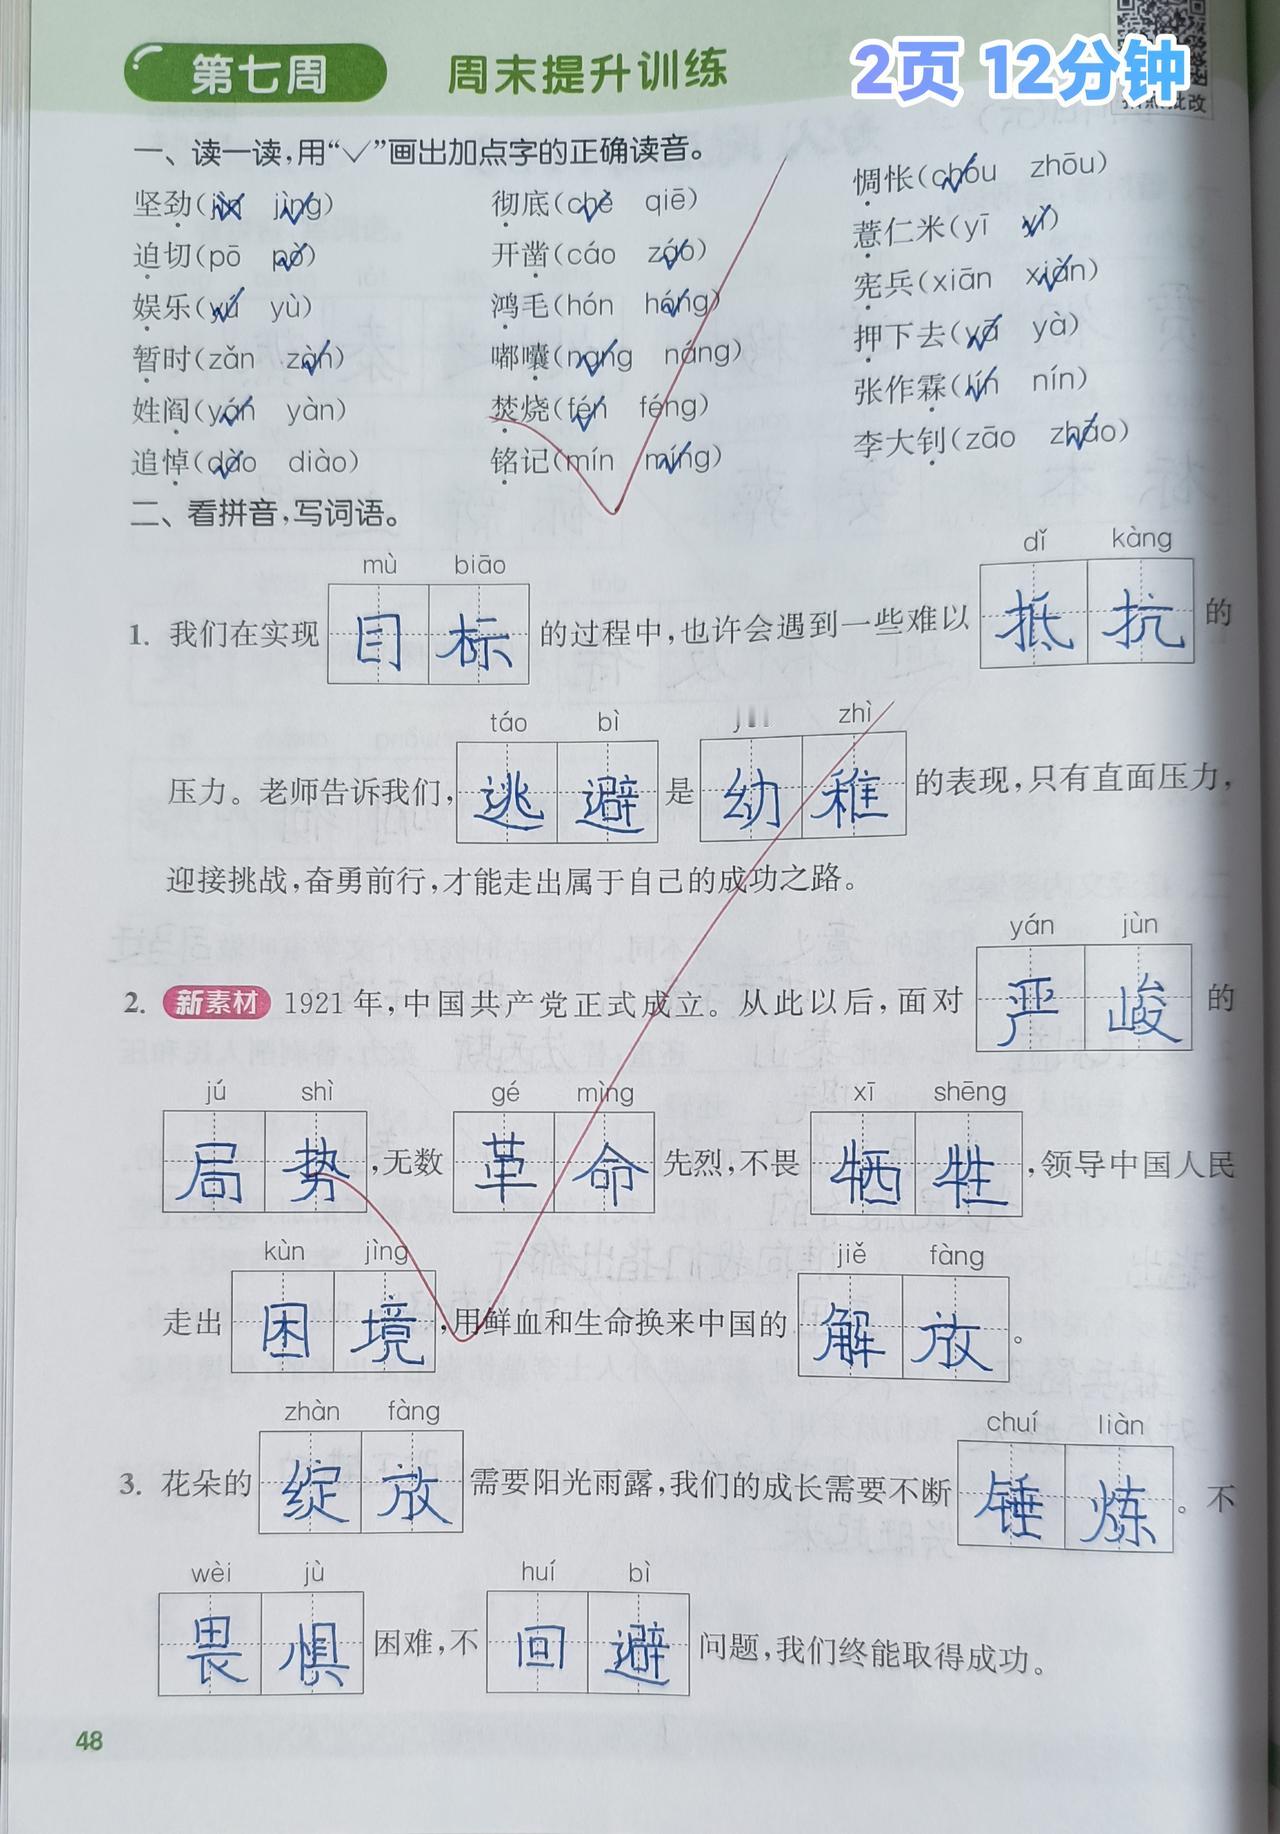 第七周 周末提升训练 2页 12分钟
一、读一读,用“✓”画出加点字的正确读音。
坚劲(jìn jìng) 彻底(chè qiē) 惆怅(chóu zhōu)
迫切(pō pò) 开凿(cáo záo) 薏仁米(yī yì)
娱乐(yú yù) 鸿毛(hón hóng) 宪兵(xiān xiàn)
暂时(zǎn zàn) 嘟囔(nang náng) 押下去(yā yà)
姓阎(yán yàn) 焚烧(fén féng) 张作霖(lín nín)
追悼(dào diào) 铭记(mín míng) 李大钊(zāo zhāo)
二、看拼音,写词语。
mù biāo dǐ kàng
1. 我们在实现 目标 的过程中,也许会遇到一些难以 抵抗 的
táo bì zhì
压力。老师告诉我们, 逃避 是 幼稚 的表现,只有直面压力,
迎接挑战,奋勇前行,才能走出属于自己的成功之路。
yán jùn
2. 新素材 1921年,中国共产党正式成立。从此以后,面对 严峻 的
jú shì gé mìng xī shēng
局势 ,无数 革命 先烈,不畏 牺牲 ,领导中国人民
kùn jìng jiě fàng
走出 困境 ,用鲜血和生命换来中国的 解放 。
zhàn fàng chuí liàn
3. 花朵的 绽放 需要阳光雨露,我们的成长需要不断 锤炼 。不
wèi jù huí bì
畏惧 困难,不 回避 问题,我们终能取得成功。
48